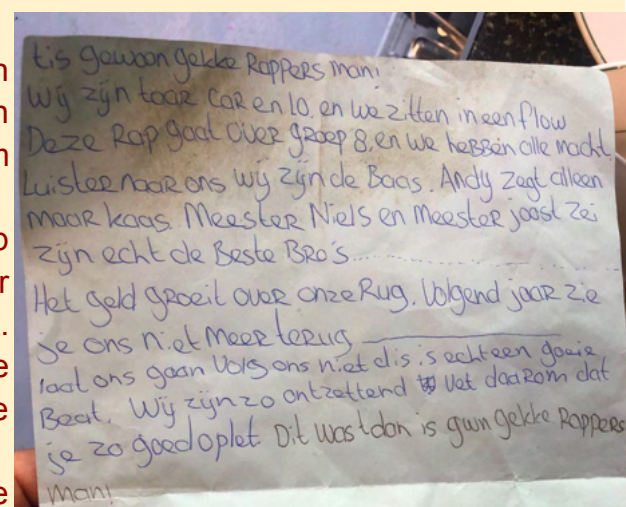 tis gewoon gekke Rappers man!
Wij zijn CaR en lo, en we zitten in een flow
Deze Rap gaat over groep 8, en we heBBen alle macht.
Luister naar ons wij zijn de Baas. Andy zegt alleen
maar kaas. Meester Niels en Meester joost Zei
zijn echt de Beste BRo's...
Het geld groeit over onze Rug. Volgend jaar zie
je ons niet meer terug
laat ons gaan Volg ons niet dis is echt een goeie
Beat. Wij zijn zo ontzettend vet daarom dat
je zo goed oplet. Dit was t dan is gwn gekke Rappers
man!